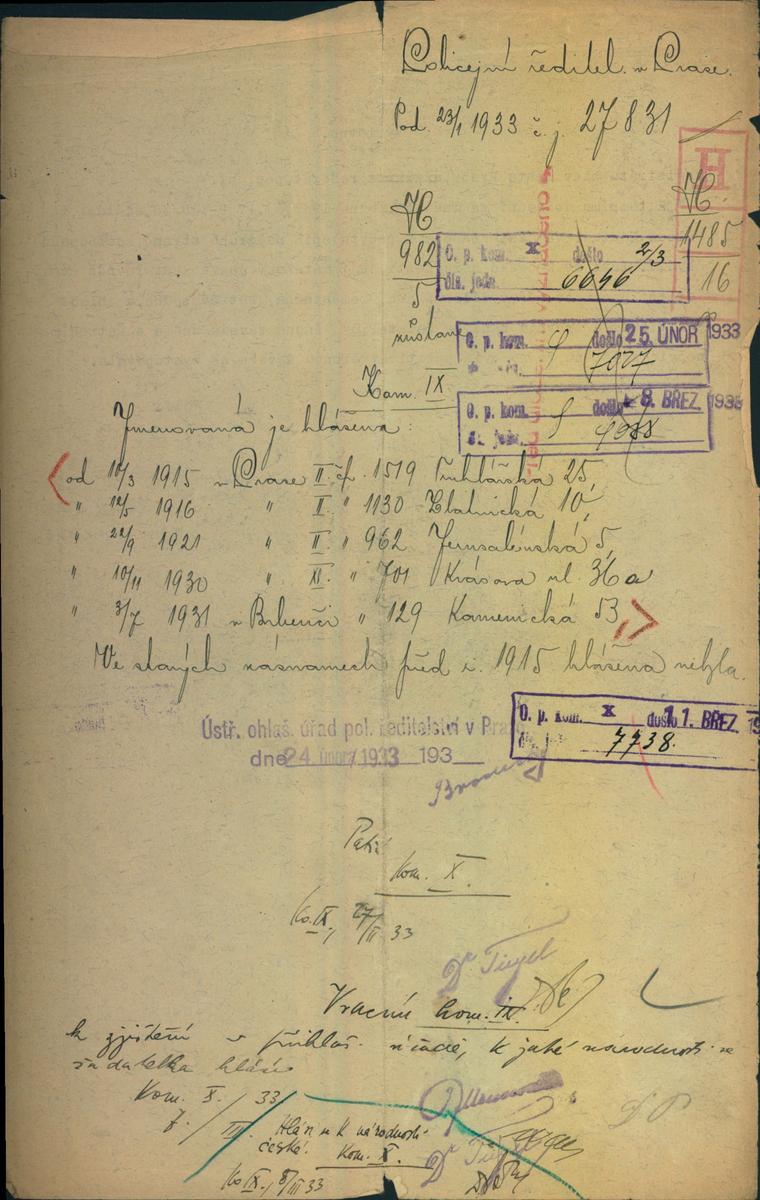 Policejní ředitel. v Praze.
Pod 23/1 1933 č. j. 27831
H
H
982
5
H
1485
16
O. p. kom. X došlo 2/3
čís. jedn. 6646
zůstane
O. p. kom. došlo 25. ÚNOR 1933
7027
Kom. IX
O. p. kom. došlo 8. BŘEZ. 1933
Jmenovaná je hlášena:
od 10/3 1915 v Praze II. čp. 1519 Truhlářska 25,
" 12/5 1916 " II. " 1130 Zlatnická 10,
" 22/9 1921 " II. " 962 Jerusalémská 5,
" 10/11 1930 " XI. " 701 Krásova ul. 36a
" 3/7 1931 v Bubenči " 129 Kamenická 53,
Ve starých záznamech před r. 1915 hlášena nebyla.
O. p. kom. X došlo 11. BŘEZ.
7738.
Ústř. ohlaš. úřad pol. ředitelství v Praze
dne 24. února 1933 193
Patří
Kom. X.
Ko. IX, 27/II 33
Dr Tiegel
Vracím kom. IX.
k zjištění v přihlaš. úřadě, k jaké národnosti se
žadatelka hlásí.
Kom. X. 33
7./III.
Hlásí se k národnosti
české. Kom. X.
Ko IX, 8/III 33
Dr Tiegel